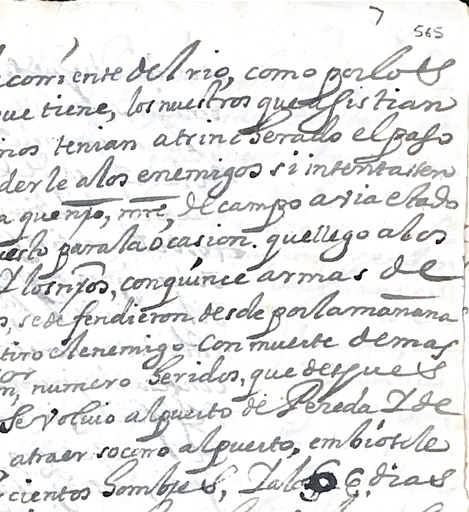 7 565
corriente del rio, como por los
que tiene, los nuestros que asistian
nos tenian atrincherado el paso
derle a los enemigos si intentassen
a que nro, mre, de campo avia estado
puesto para la ocasion. que llego a los
Y los nros, con quince armas de
se defendieron desde por la mañana
tiro el enemigo con muerte de mas
numero heridos, que despues
se volvio al puerto de Pereda Y de
atraer socorro al puerto, embiosele
cientos hombres, Y a los 6 dias